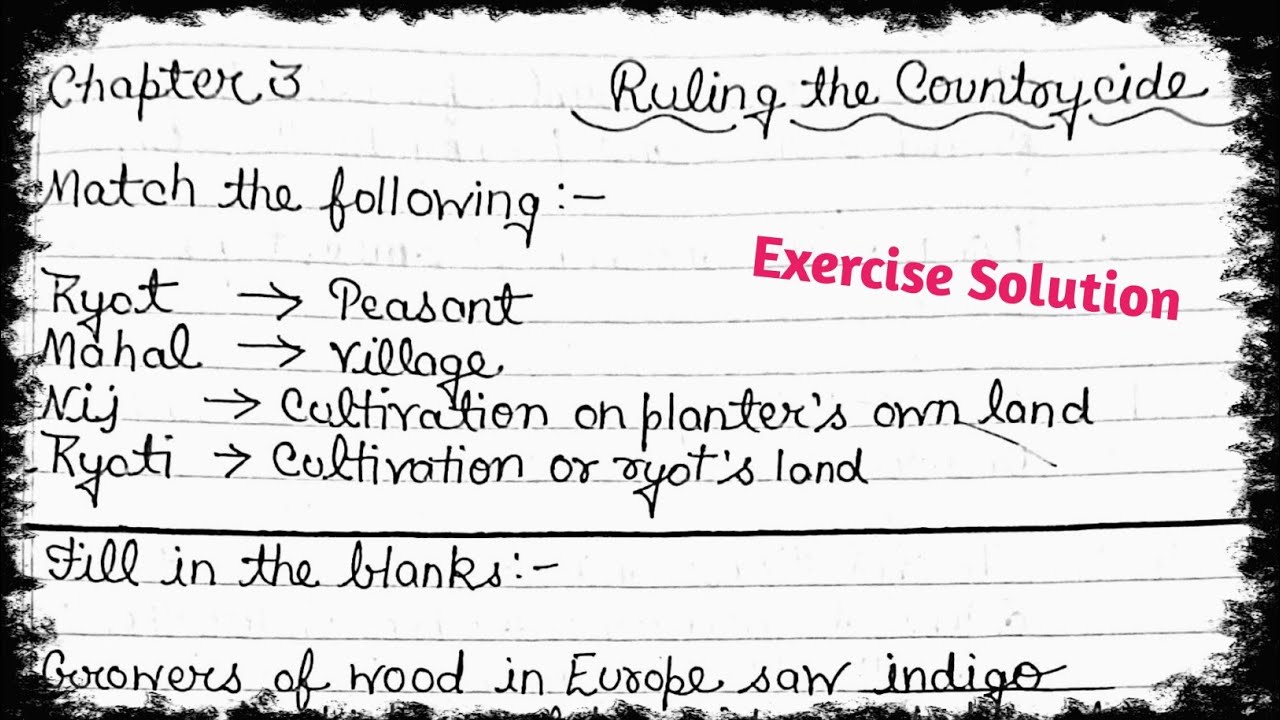 Chapter 3 Ruling the Countrycide
Match the following :-
Exercise Solution
Ryot → Peasant
Mahal → village
Nij → Cultivation on planter's own land
Ryoti → Cultivation or ryot's land
Fill in the blanks :-
Growers of wood in Europe saw indigo